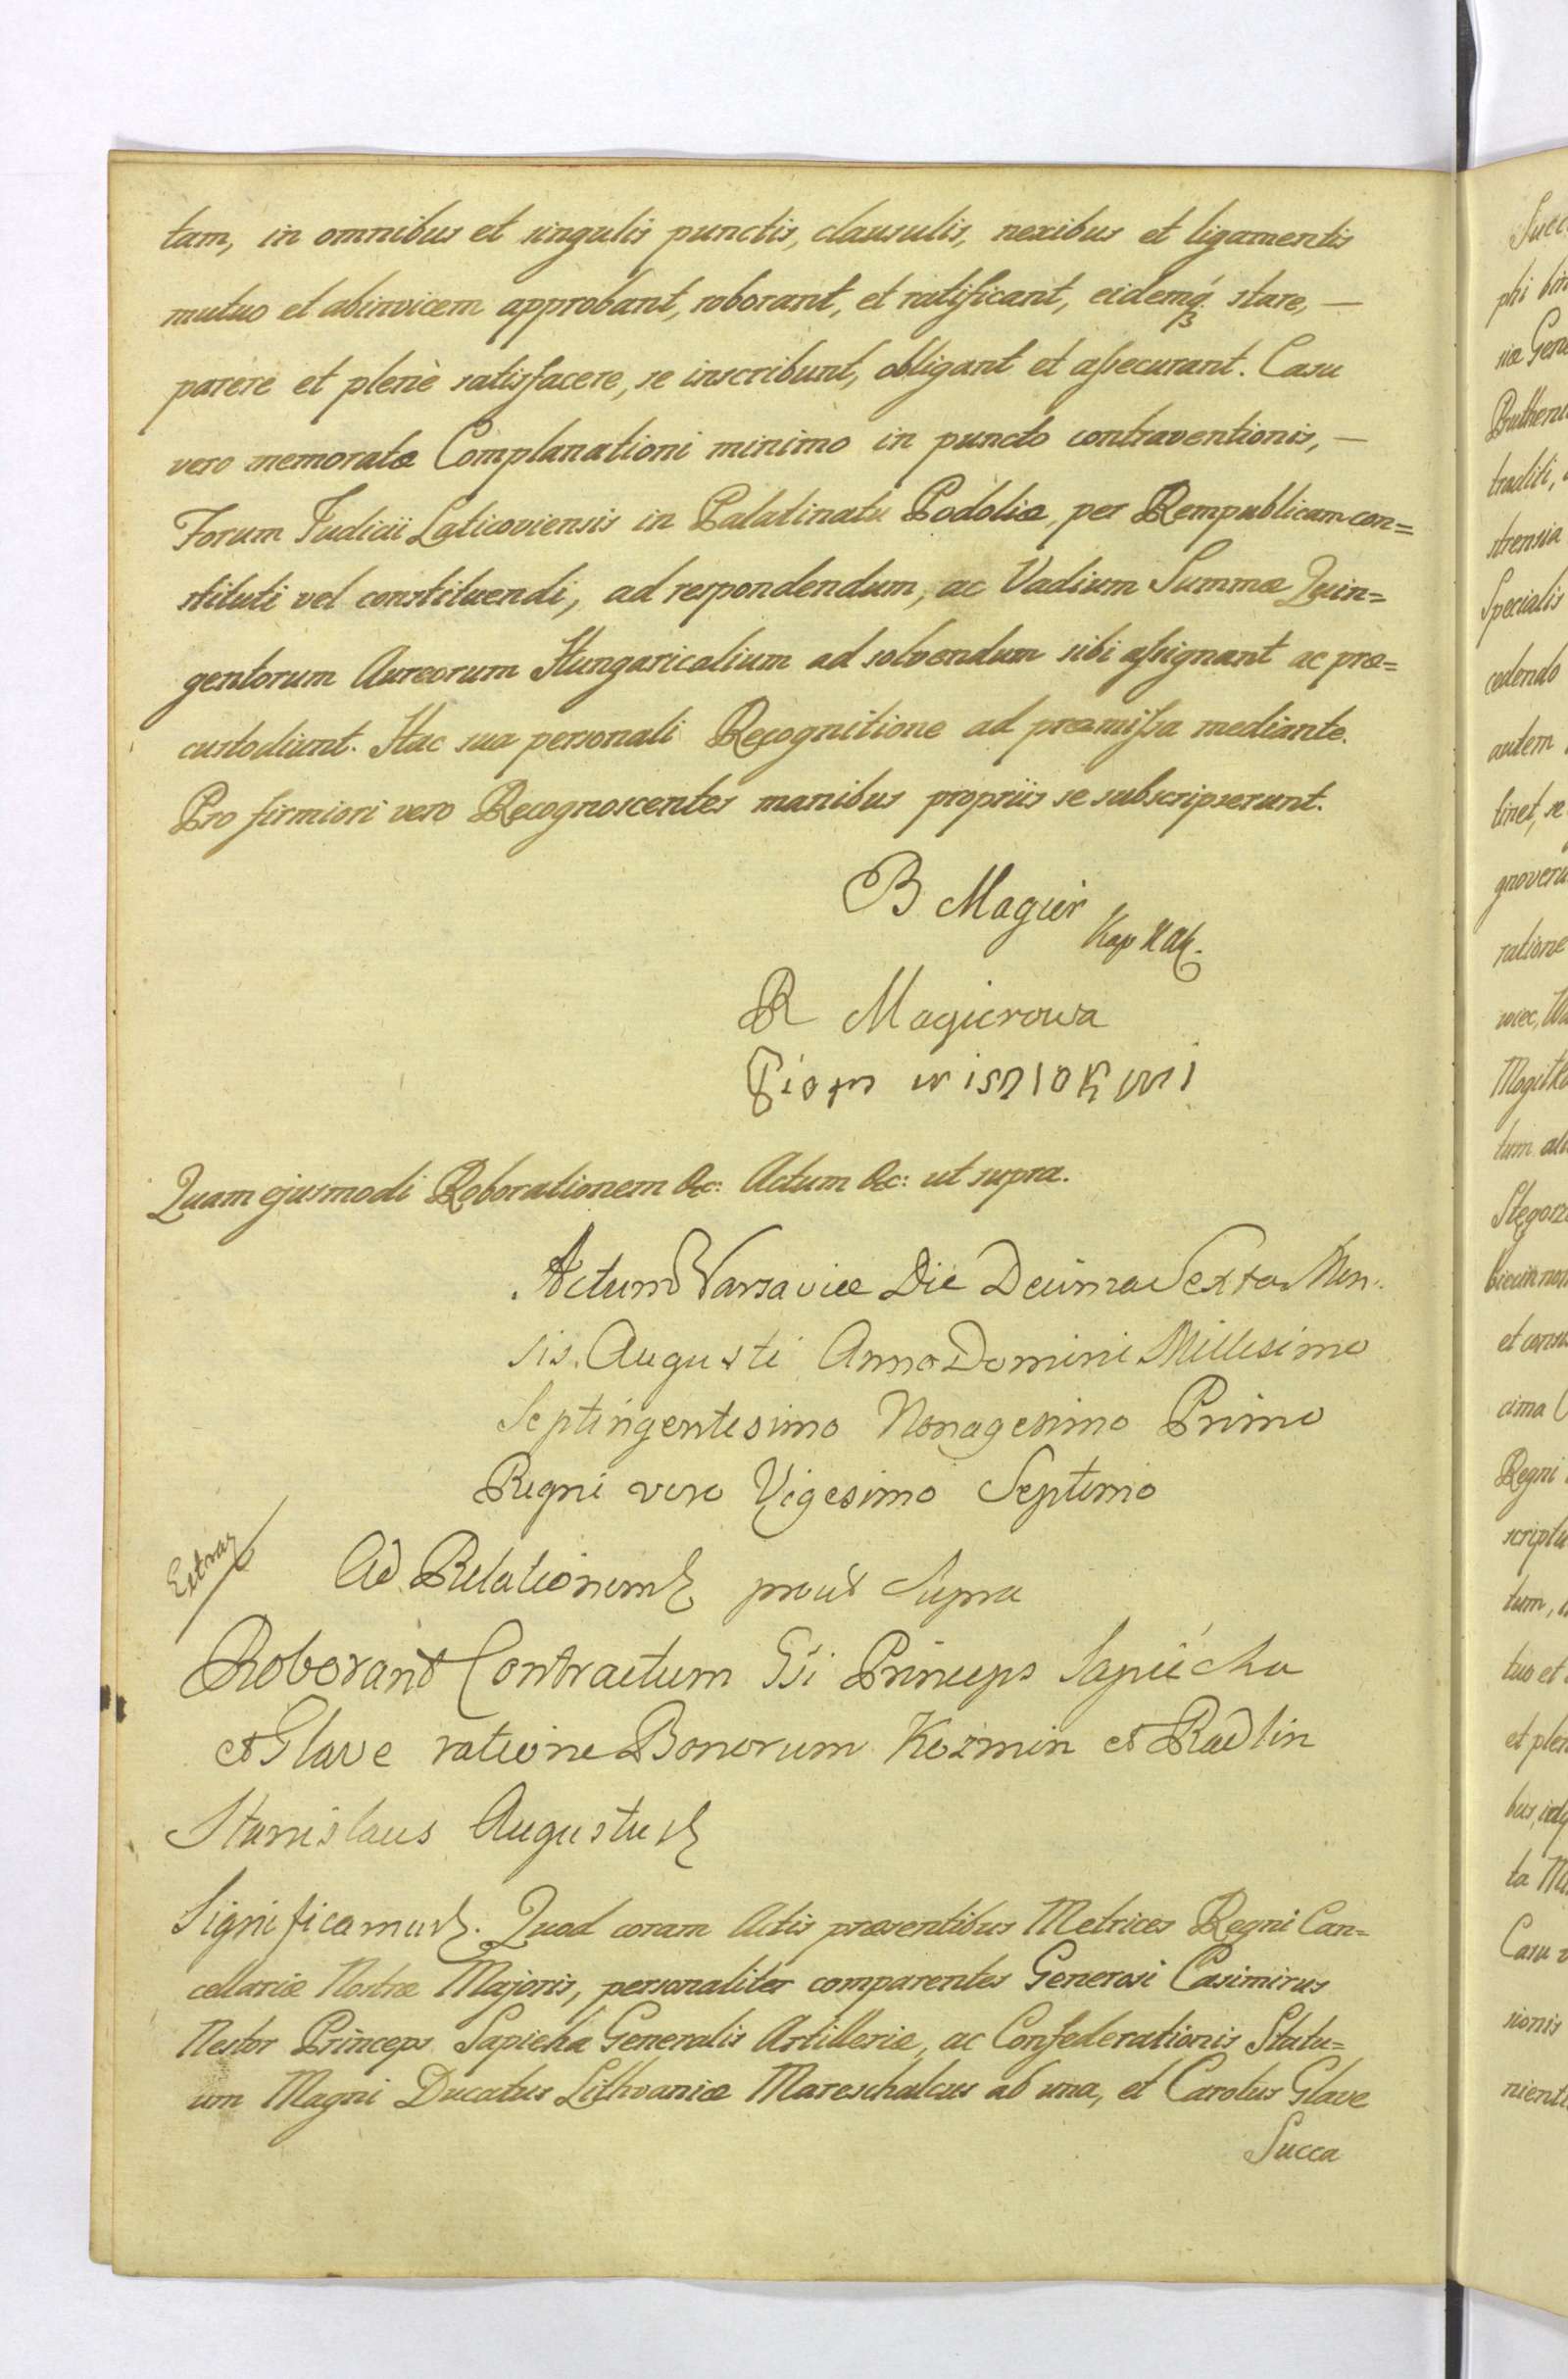 tam, in omnibus et singulis punctis, clausulis, nexibus et ligamentis
mutuo et abinvicem approbant, roborant, et ratificant, eidemq́ꝫ stare, —
parere et plenè satisfacere, se inscribunt, obligant et aſsecurant. Casu
vero memoratæ Complanationi minimo in puncto contraventionis, —
Forum Judicii Laticoviensis in Palatinatu Podoliæ, per Rempublicam con=
stituti vel constituendi, ad respondendum, ac Vadium Summæ Quin=
gentorum Aureorum Hungaricalium ad solvendum sibi aſsignant ac præ=
custodiunt. Hac sua personali Recognitione ad præmiſsa mediante.
Pro firmiori vero Recognoscentes manibus propriis se subscripserunt.
B Magier
Kap
R Magierowa
Piotr
Quam ejusmodi Roborationem &c: Actum &c: ut supra.
Actum Varsaviæ Die Decima Sexta Men
sis Augusti Anno Domini Millesimo
Septingentesimo Nonagesimo Primo
Regni vero Vigesimo Septimo
Extrad
Ad Relationem prout Supra
Roborant Contractum Gsi Princeps Sapieha
et Glave ratione Bonorum Kozmin et Radlin
Stanislaus Augustus
Significamus. Quod coram Actis præsentibus Metrices Regni Can=
cellariæ Nostræ Majoris, personaliter comparentes Generosi Casimirus
Nestor Princeps Sapieha Generalis Artilleriæ, ac Confederationis Statu=
um Magni Ducatus Lithvaniæ Mareschalcus ab una, et Carolus Glave
Succa